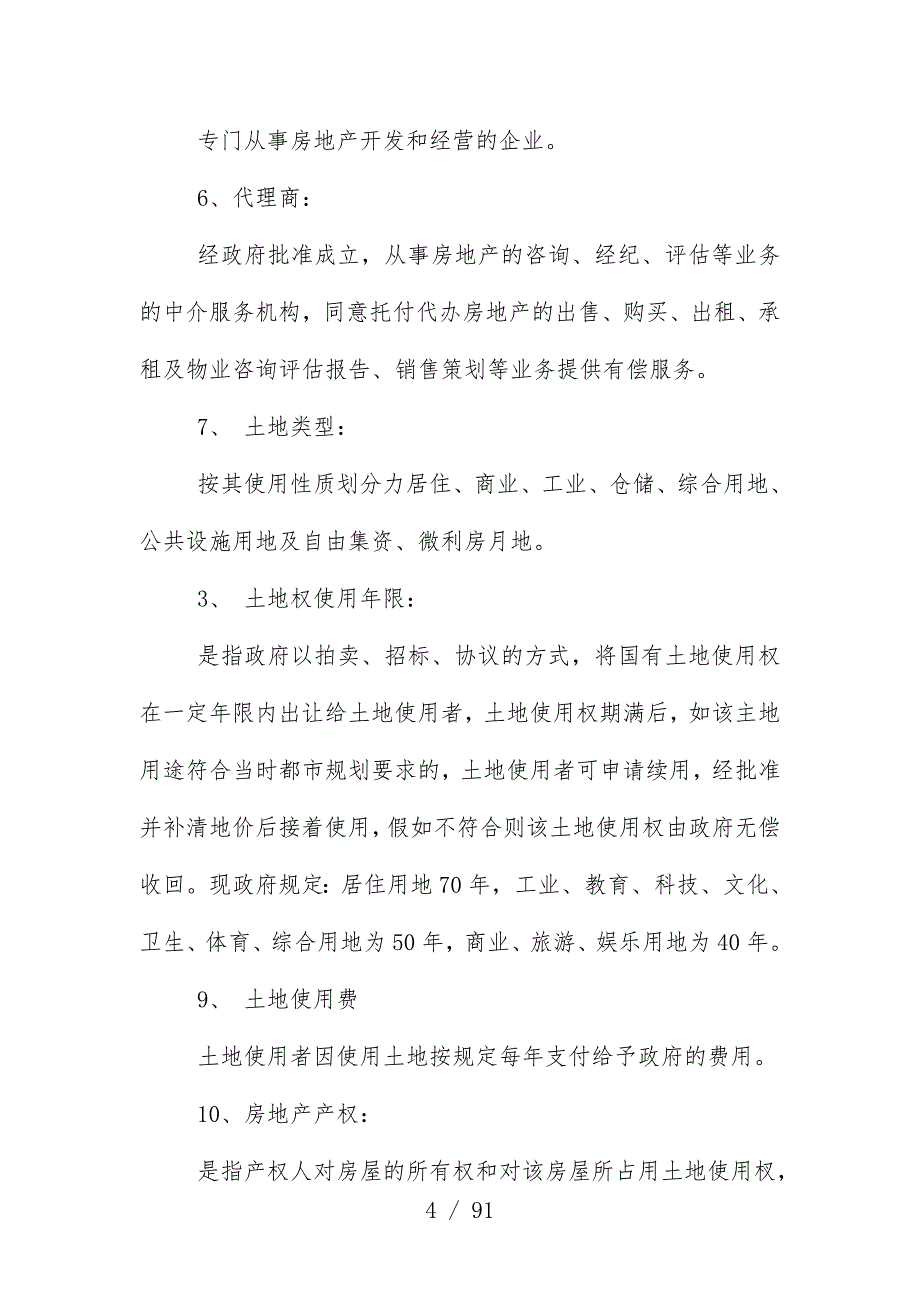 专门从事房地产开发和经营的企业。
6、代理商：
经政府批准成立，从事房地产的咨询、经纪、评估等业务
的中介服务机构，同意托付代办房地产的出售、购买、出租、承
租及物业咨询评估报告、销售策划等业务提供有偿服务。
7、 土地类型：
按其使用性质划分力居住、商业、工业、仓储、综合用地、
公共设施用地及自由集资、微利房月地。
3、 土地权使用年限：
是指政府以拍卖、招标、协议的方式，将国有土地使用权
在一定年限内出让给土地使用者，土地使用权期满后，如该主地
用途符合当时都市规划要求的，土地使用者可申请续用，经批准
并补清地价后接着使用，假如不符合则该土地使用权由政府无偿
收回。现政府规定：居住用地 70 年，工业、教育、科技、文化、
卫生、体育、综合用地为 50 年，商业、旅游、娱乐用地为 40 年。
9、 土地使用费
土地使用者因使用土地按规定每年支付给予政府的费用。
10、房地产产权：
是指产权人对房屋的所有权和对该房屋所占用土地使用权，
4 / 91